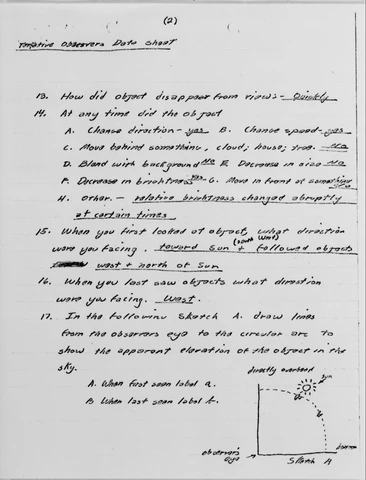 (2)
Tentative Observers Data Sheet
13. How did object disappear from view:- Quickly
14. At any time did the object
A. Change direction - yes B. Change speed - yes
C. Move behind something, cloud; house; tree. No
D. Blend with background No E. Decrease in size No
F. Decrease in brightness yes G. Move in front of something No
H. Other. - relative brightness changed abruptly
at certain times
15. When you first looked at object, what direction
were you facing. toward Sun (south west) + followed objects
west + north of Sun
16. When you last saw objects what direction
were you facing. West.
17. In the following sketch A. draw lines
from the observers eye to the circular arc to
show the apparent elevation of the object in the
sky.
A. When first seen label a.
B When last seen label b.
directly overhead
Sun
observer's
eye
horizon
Sketch A